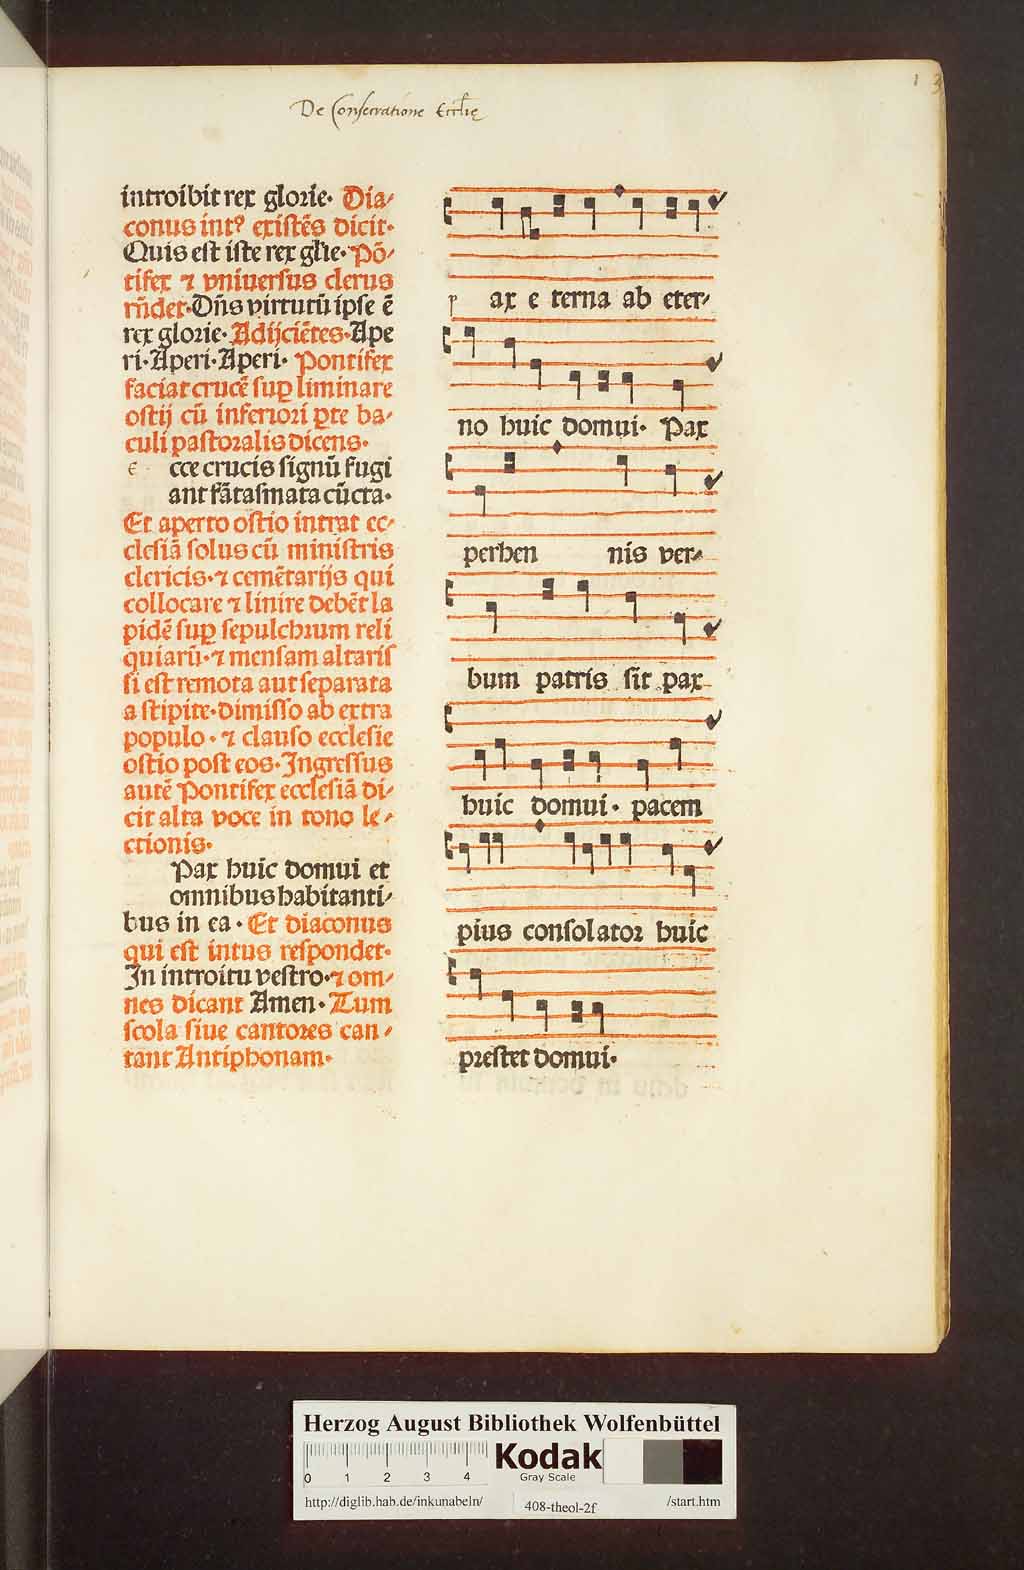 De Consecratione Eccłię
13
introibit rex glorie. Dia-
conus intꝰ existēs dicit.
Quis est iste rex glīe. Pō-
tifex ⁊ vniuersus clerus
rn̄det. Dn̄s virtutū ipse ē
rex glorie. Adijciētes. Ape
ri. Aperi. Aperi. Pontifex
faciat crucē suꝑ liminare
ostij cū inferiori ꝑte ba-
culi pastoralis dicens.
e cce crucis signū fugi
ant fātasmata cūcta.
Et aperto ostio intrat ec-
clesiā solus cū ministris
clericis. ⁊ cemētarijs qui
collocare ⁊ linire debēt la
pidē suꝑ sepulchrum reli
quiarū. ⁊ mensam altaris
si est remota aut separata
a stipite. dimisso ab extra
populo. ⁊ clauso ecclesie
ostio post eos. Ingressus
autē Pontifex ecclesiā di-
cit alta voce in tono le-
ctionis.
Pax huic domui et
omnibus habitanti-
bus in ea. Et diaconus
qui est intus respondet.
In introitu vestro. ⁊ om-
nes dicant Amen. Tum
scola siue cantores can-
tant Antiphonam.
p ax e terna ab eter-
no huic domui. Pax
perhen nis ver-
bum patris sit pax
huic domui. pacem
pius consolator huic
prestet domui.
Herzog August Bibliothek Wolfenbüttel
0 1 2 3 4
Kodak
Gray Scale
http://diglib.hab.de/inkunabeln/ 408-theol-2f /start.htm